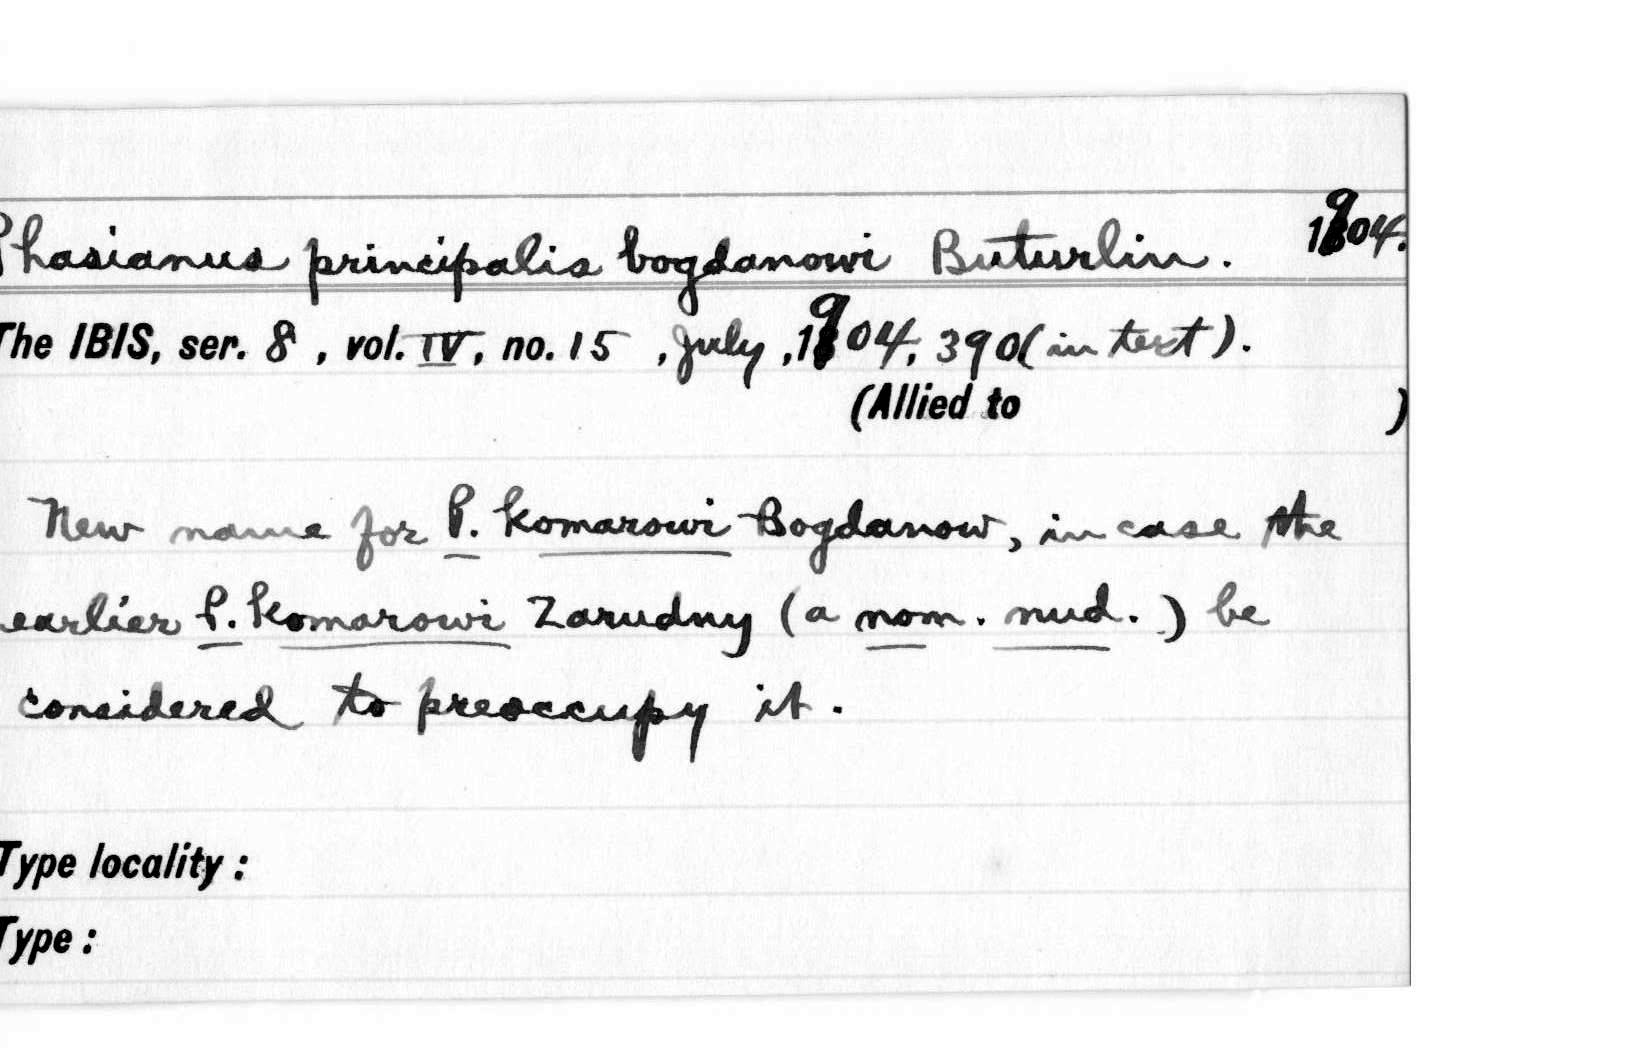 Phasianus principalis bogdanowi Buturlin. 1904.
The IBIS, ser. 8, vol. IV, no. 15, July, 1904, 390 (in text).
(Allied to )
New name for P. komarowi Bogdanow, in case the
earlier P. komarowi Zarudny (a nom. nud.) be
considered to preoccupy it.
Type locality:
Type: